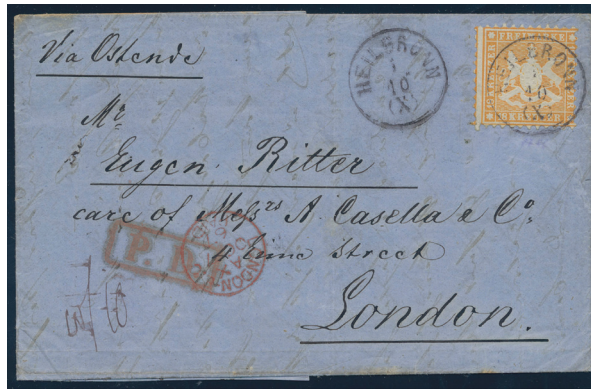 Via Ostende
HEILBRONN
1
10
(X)
HEILBRONN
1
10
(X)
FREIMARKE
Mr
Eugen Ritter
care of Messrs A. Casella & Co.
4 Lime Street
P.D.
LONDON
London.